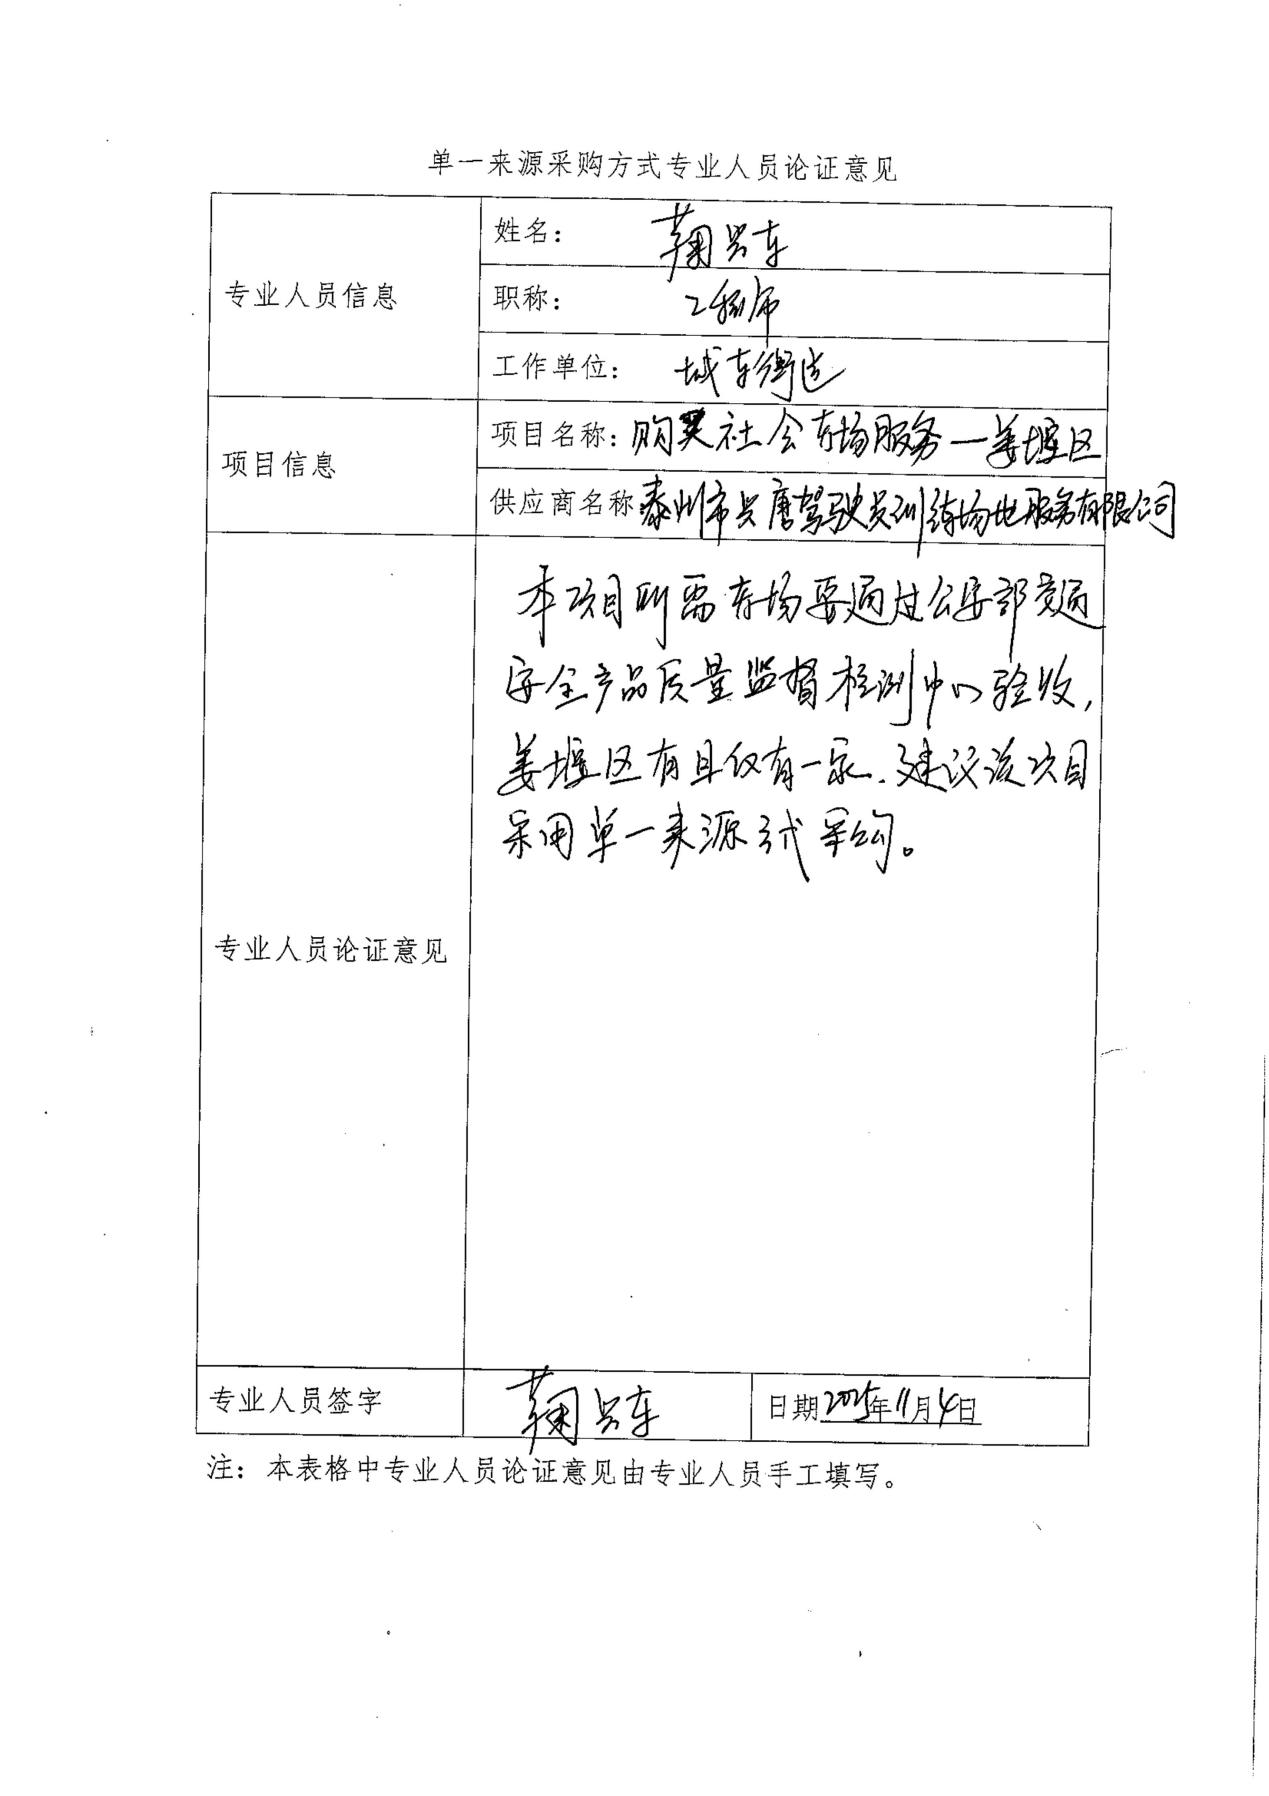 单一来源采购方式专业人员论证意见
专业人员信息
姓名: 鞠兴车
职称: 工程师
工作单位: 城东街道
项目信息
项目名称: 购买社会考场服务一姜堰区
供应商名称 泰州市兴唐驾驶员训练场地服务有限公司
专业人员论证意见
本项目所需考场要通过公安部交通
安全产品质量监督检测中心验收,
姜堰区有且仅有一家.建议该项目
采用单一来源方式采购。
专业人员签字
鞠兴东
日期2025年11月4日
注: 本表格中专业人员论证意见由专业人员手工填写。